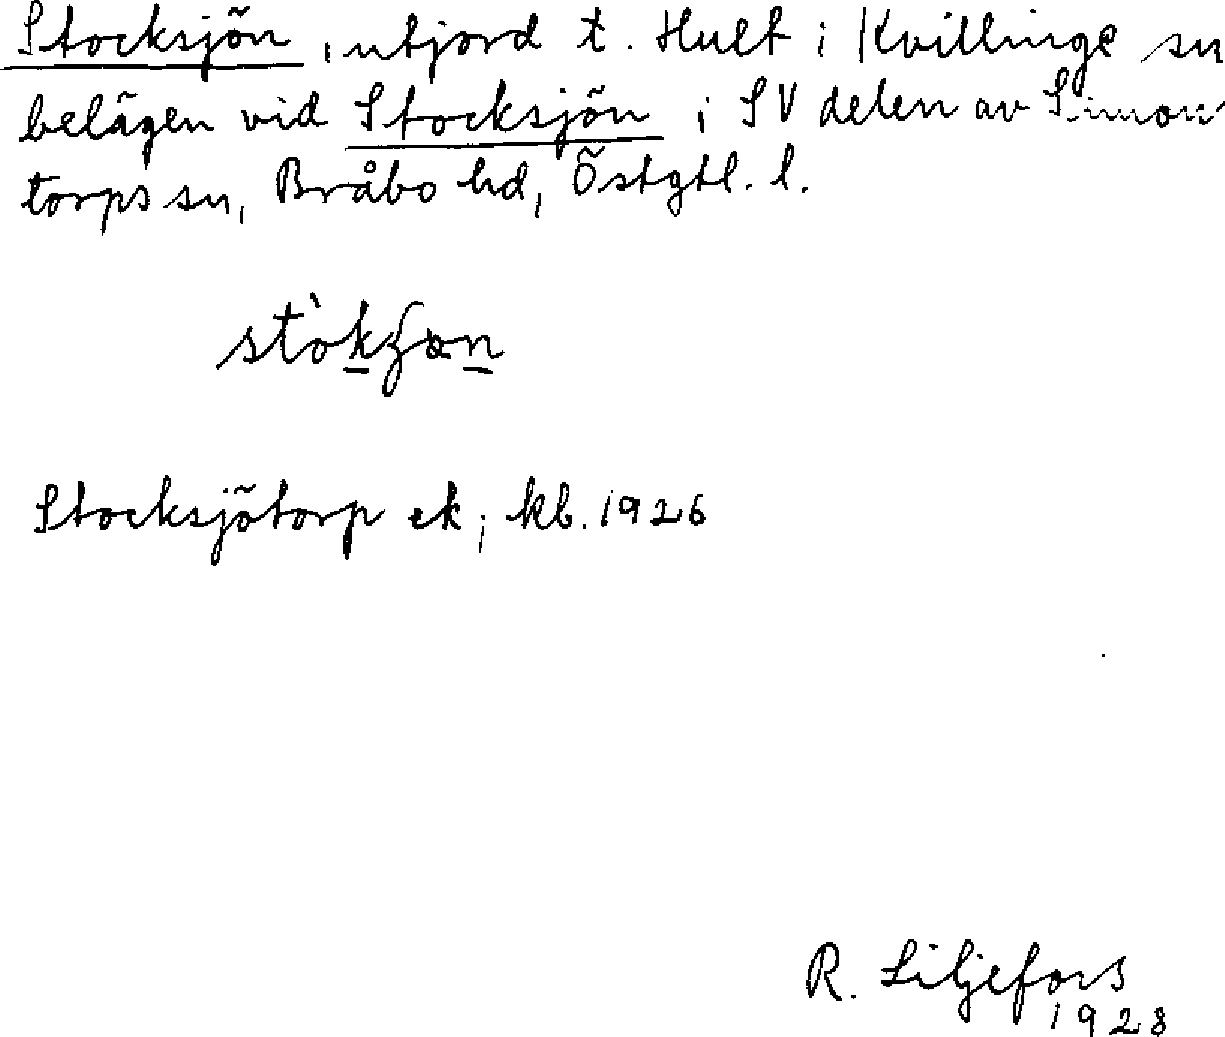 Stocksjön, utjord t. Hult i Kvillinge sn
belägen vid Stocksjön i SV delen av Simons
torps sn, Bråbo hd, Östgtl. l.
Stocksjötorp ek; kb. 1926
R. Liljefors
1928